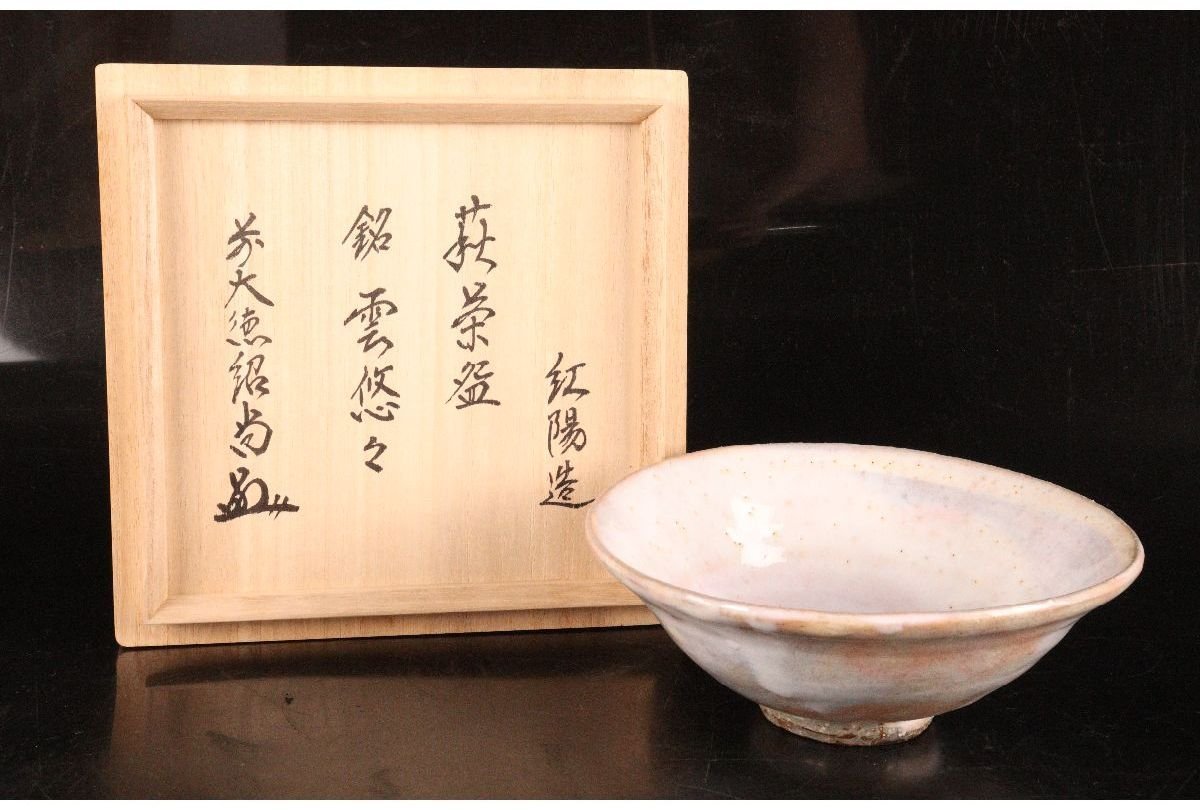 紅陽造
萩茶盌
銘 雲悠々
前大徳紹尚